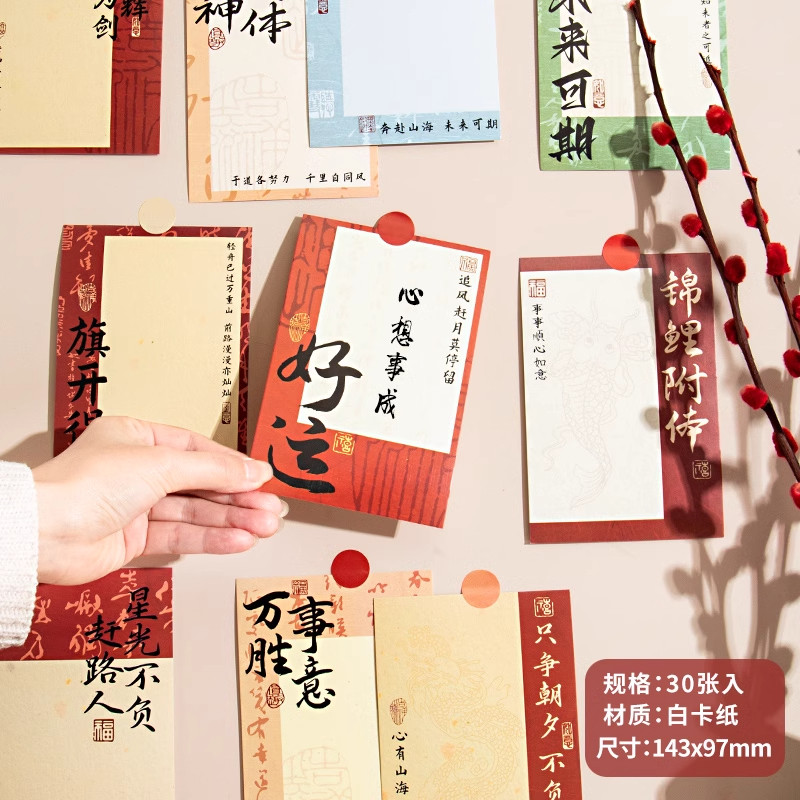 为剑
辉
神
体
于道各努力 千里自同风
奔赴山海 未来可期
未来可期
如来者之可追
轻舟已过万重山 前路漫漫亦灿灿
旗开得
追风赶月莫停留
心想事成
好运
福
事事顺心如意
锦鲤附体
星光不负
赶路人
福
万事胜意
心有山海
只争朝夕 不负
规格:30张入
材质:白卡纸
尺寸:143x97mm